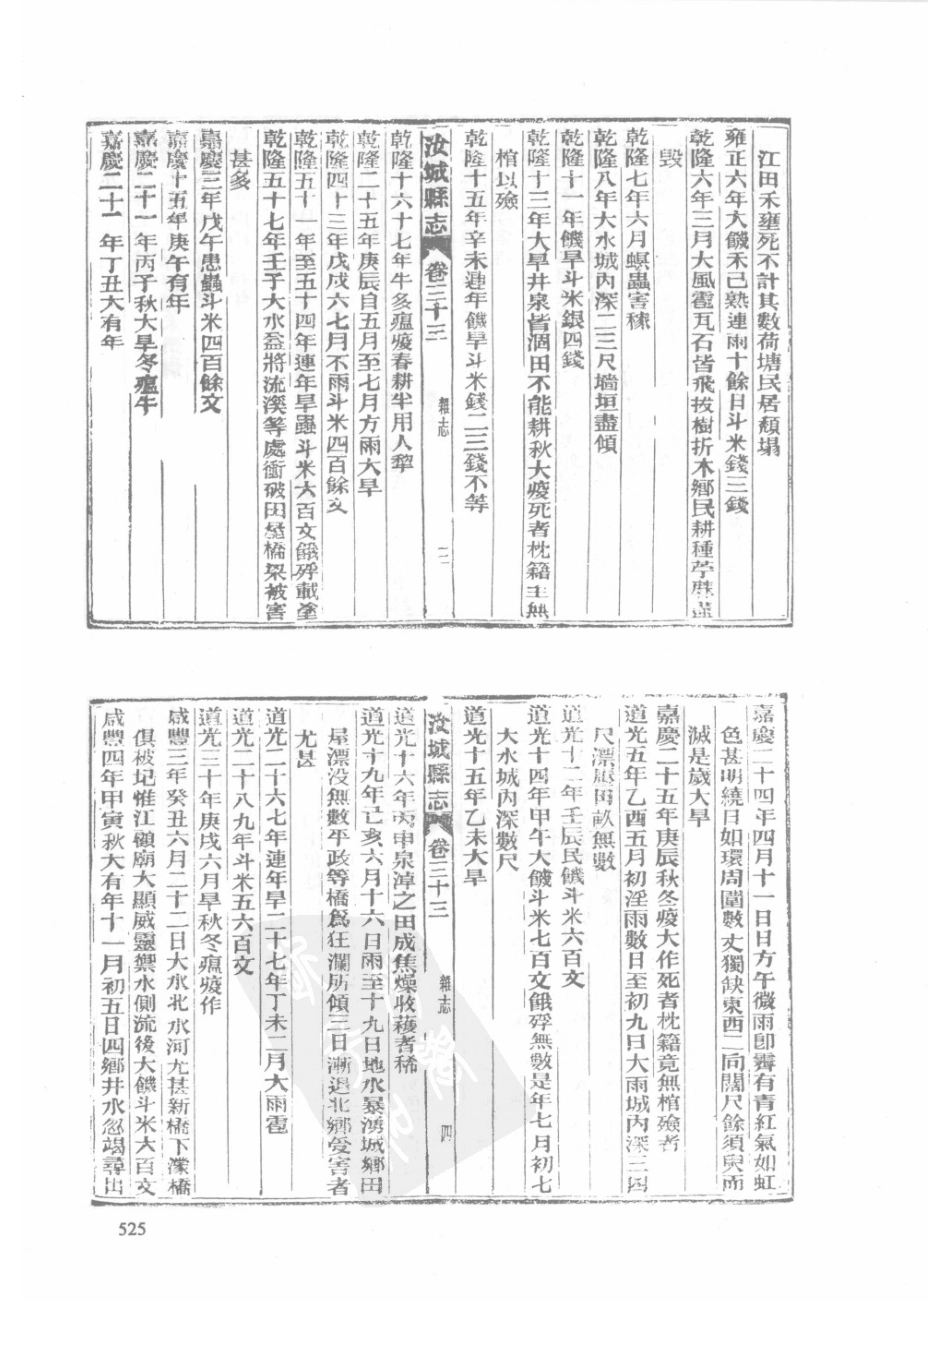 江田禾壅死不計其數荷塘民居頹塌
雍正六年大饑禾已熟連雨十餘日斗米錢三錢
乾隆六年三月大風雹瓦石皆飛拔樹折木鄉民耕種苧麻盡
毀
乾隆七年六月螟蟲害稼
乾隆八年大水城內深二三尺墻垣盡傾
乾隆十一年饑旱斗米銀四錢
乾隆十三年大旱井泉皆涸田不能耕秋大疫死者枕籍至無
棺以殮
乾隆十五年辛未連年饑旱斗米錢二三錢不等
汝城縣志 卷三十三 雜志 三
乾隆十六十七年牛多瘟疫春耕半用人犂
乾隆二十五年庚辰自五月至七月方雨大旱
乾隆四十三年戊戌六七月不雨斗米四百餘文
乾隆五十一年至五十四年連年旱蟲斗米六百文餓殍載塗
乾隆五十七年壬子大水益將流溪等處衝破田墓橋梁被害
甚多
嘉慶三年戊午患蟲斗米四百餘文
嘉慶十五年庚午有年
嘉慶二十一年丙子秋大旱冬瘟牛
嘉慶二十一年丁丑大有年
嘉慶二十四年四月十一日日方午微雨卽霽有青紅氣如虹
色甚明繞日如環周圍數丈獨缺東西二向闊尺餘須臾而
滅是歲大旱
嘉慶二十五年庚辰秋冬疫大作死者枕籍竟無棺殮者
道光五年乙酉五月初淫雨數日至初九日大雨城內深三四
尺漂廬田畝無數
道光十二年壬辰民饑斗米六百文
道光十四年甲午大饑斗米七百文餓殍無數是年七月初七
大水城內深數尺
道光十五年乙未大旱
汝城縣志 卷三十三 雜志 四
道光十六年丙申泉淖之田成焦燥收穫者稀
道光十九年己亥六月十六日雨至十九日地水暴湧城鄉田
屋漂没無數平政等橋爲狂瀾所傾三日漸退北鄉受害者
尤甚
道光二十六七年連年旱二十七年丁未二月大雨雹
道光二十八九年斗米五六百文
道光三十年庚戌六月旱秋冬瘟疫作
咸豐三年癸丑六月二十二日大水北水河尤甚新橋下濼橋
俱被圮惟江頟廟大顯威靈禦水側流後大饑斗米六百文
咸豐四年甲寅秋大有年十一月初五日四鄉井水忽竭尋出
525